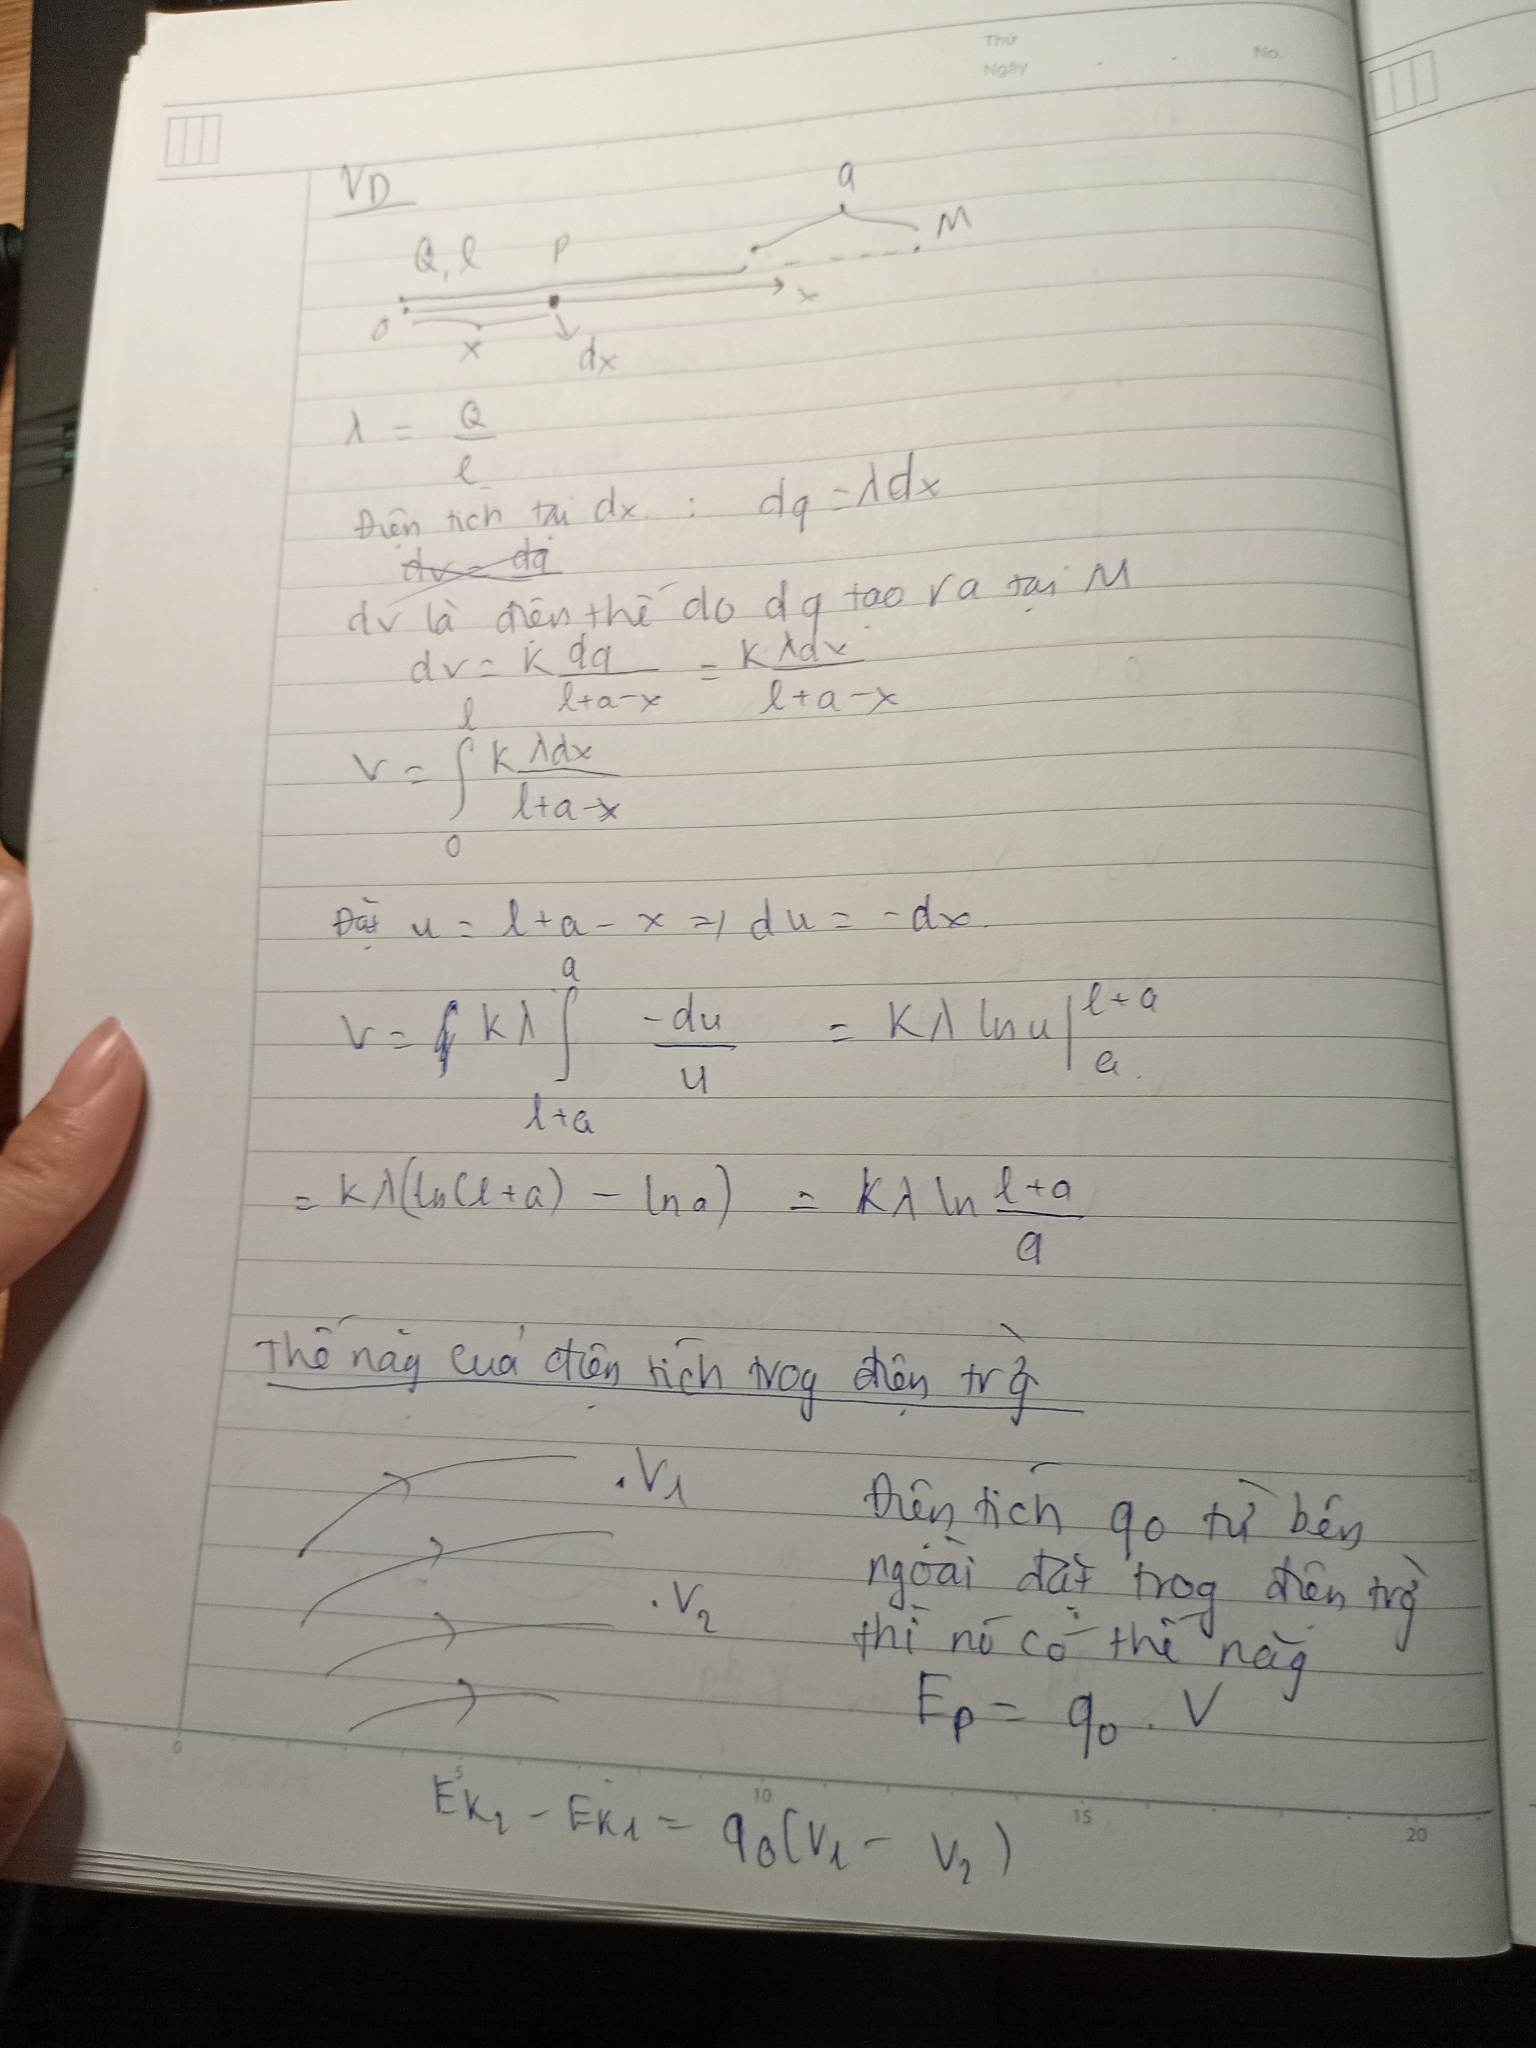 Thứ
Ngày
No.
VD
a
M
Q, l P
O x dx x
λ = Q/l
Điện tích tại dx : dq = λdx
dv = dq
dv là điện thế do dq tạo ra tại M
dv = k dq/(l+a-x) = kλdx/(l+a-x)
v = ∫₀ˡ kλdx/(l+a-x)
Đặt u = l+a-x => du = -dx
v = kλ ∫_{l+a}^{a} -du/u = kλ ln u |_{a}^{l+a}
= kλ(ln(l+a) - ln a) = kλ ln (l+a)/a
Thế năg của điện tích trog điện trg
.V₁
.V₂
Điện tích q₀ từ bên
ngoài đặt trog điện trg
thì nó có thế năg
Ep = q₀ . V
0 5 10 15 20
Ek₂ - Ek₁ = q₀(V₁ - V₂)